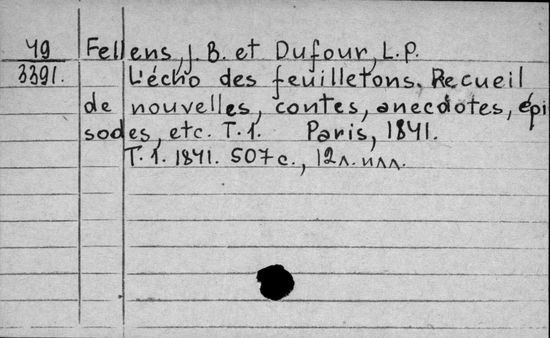 49 Fellens, J. B. et Dufour, L. P.
3391. L'écho des feuilletons. Recueil
de nouvelles, contes, anecdotes, épi
sodes, etc. T. 1. Paris, 1841.
T. 1. 1841. 507 с., 12 л. илл.